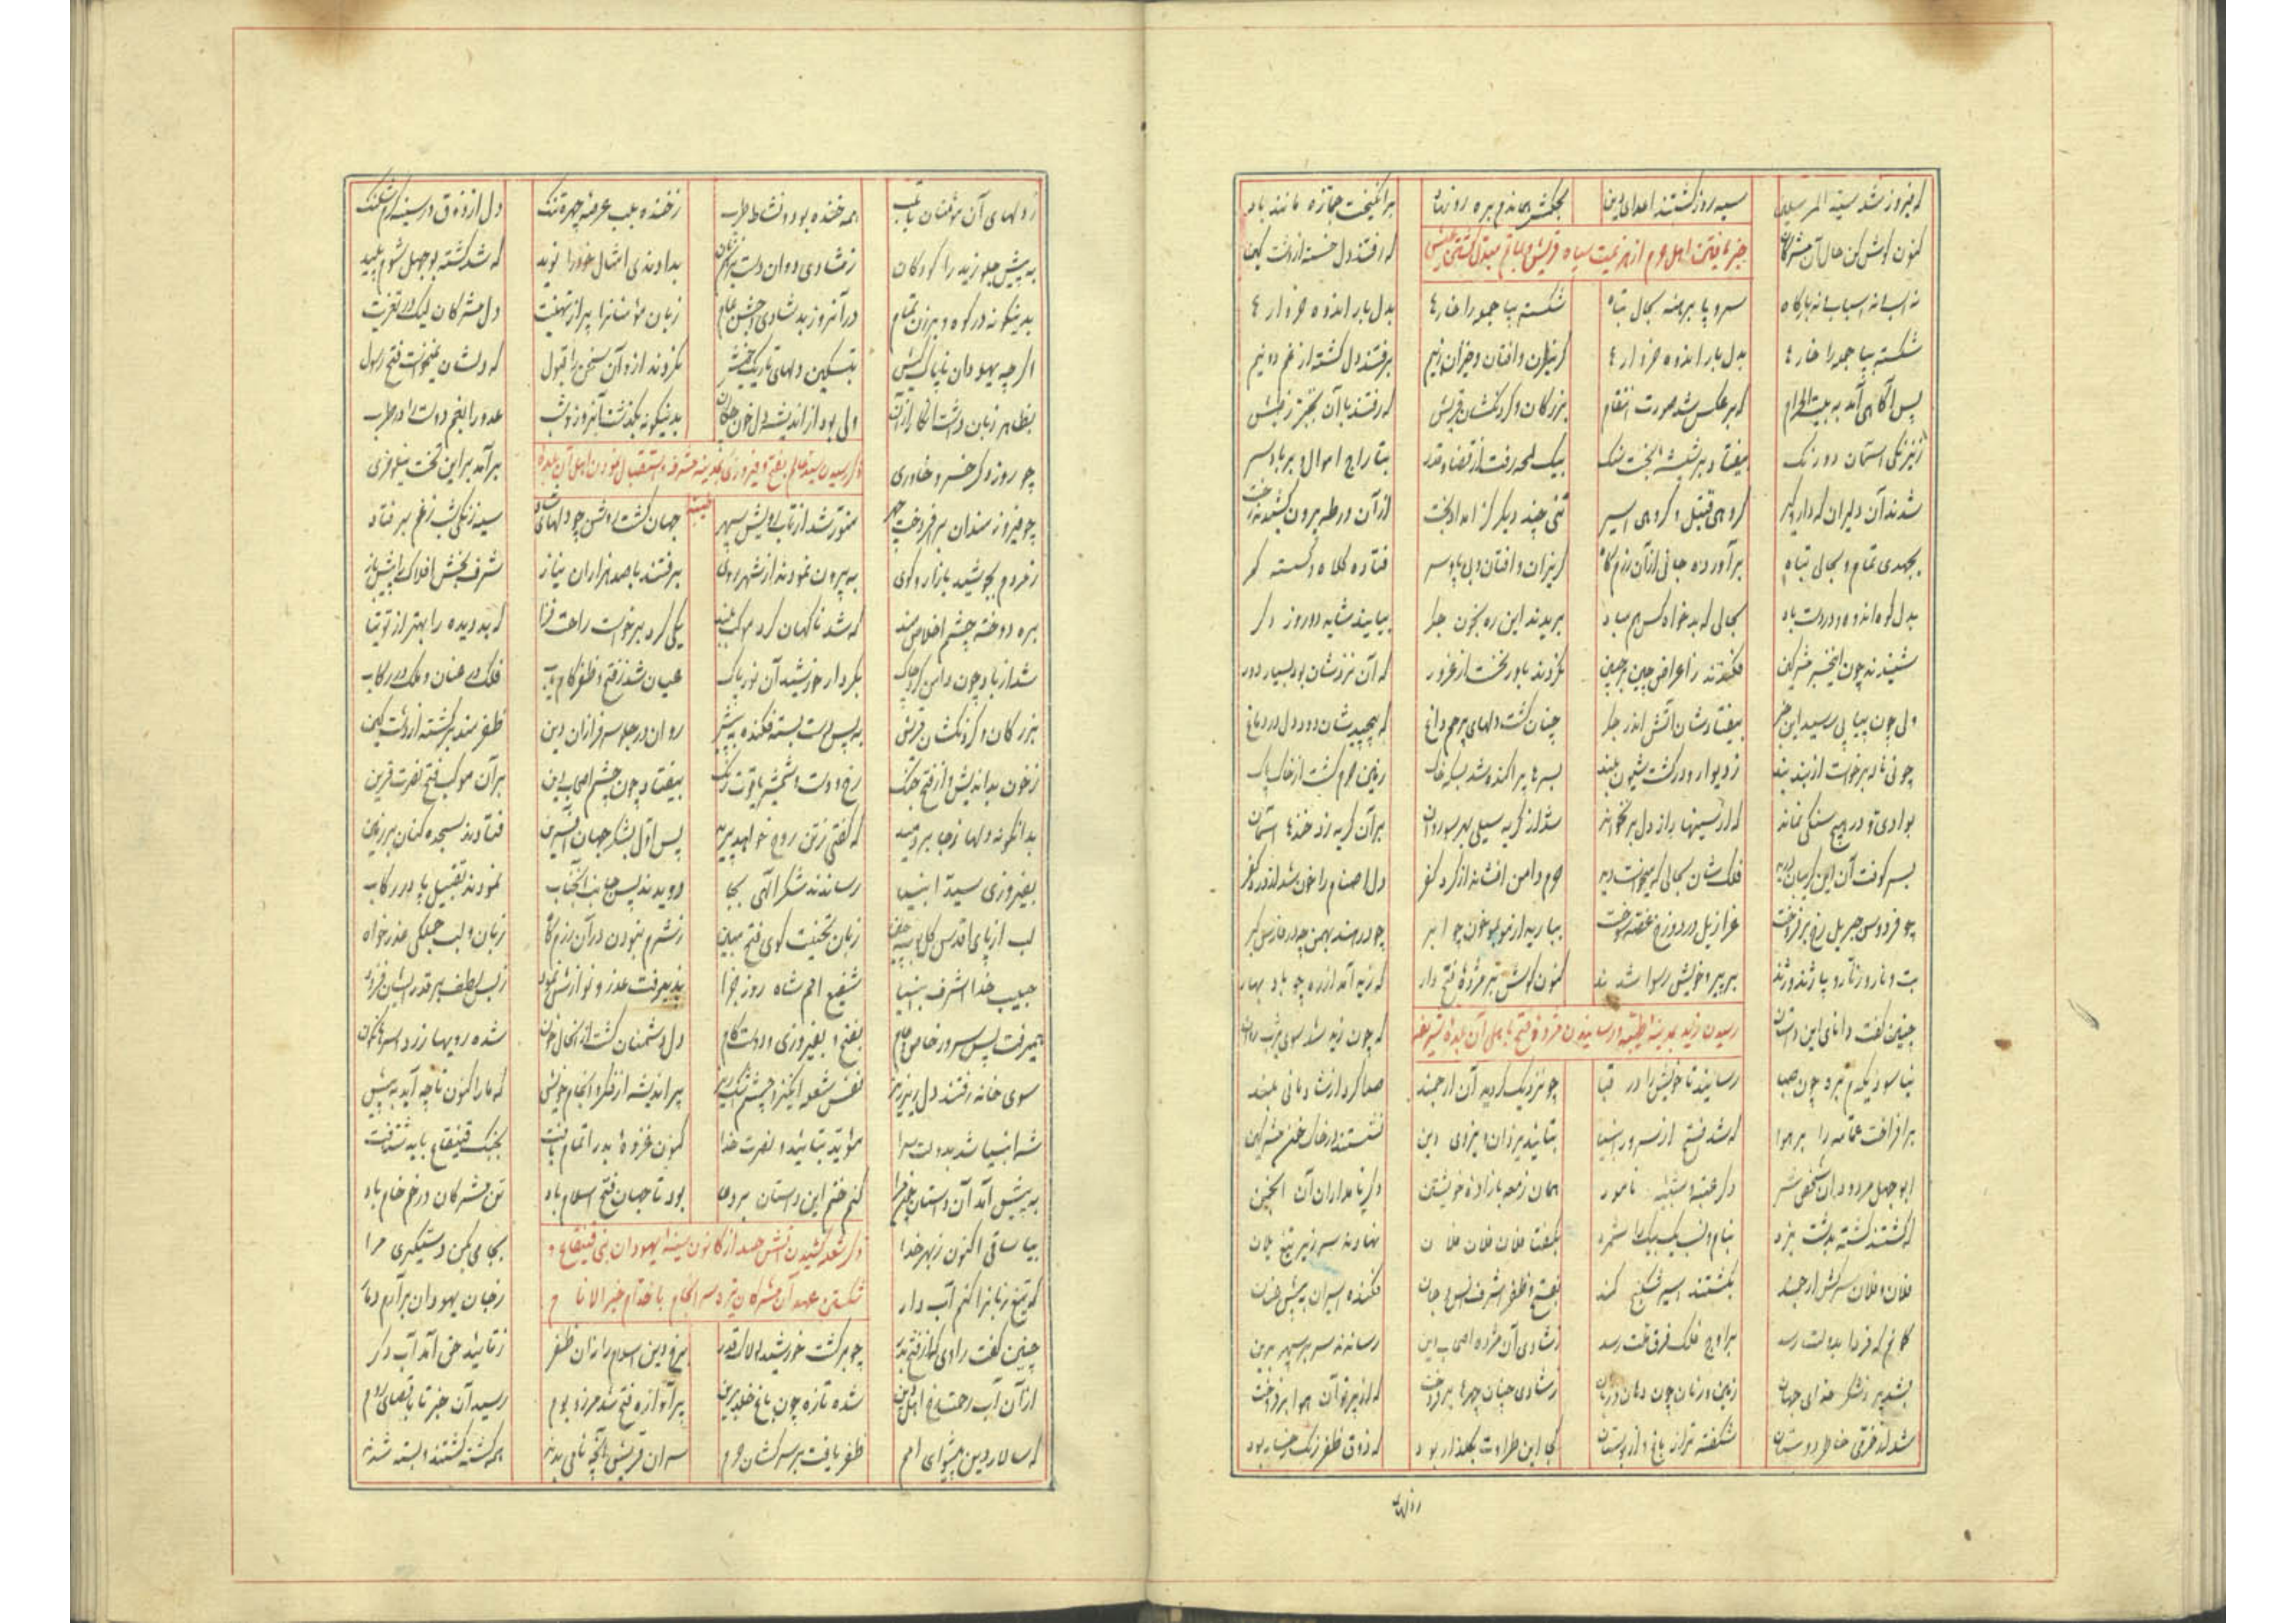 که فیروز شد سید المرسلین سیه روز گشتند اعدای دین بحکمش هماندم بره رو نهاد برانگیخت جمازه مانند باد
کنون گوش کن حال آن مشرکان که رفتند دل خسته از دشت کین
خبر یافتن اهل حرم از هزیمت سپاه قریش و بماتم مبدل گشتن عیش
نه اسب و نه اسباب و نه بارگاه سر و پا برهنه بحال تباه شکسته بپا جمله را خارها بدل بار اندوه خروارها
شکسته بپا جمله را خارها بدل بار اندوه خروارها گریزان و افتان و خیزان ز بیم برفتند دل گشته از غم دو نیم
پس آگاهی آمد به بیت الحرام که برعکس شد صورت انتقام بزرگان و گردنکشان قریش که رفتند با آن تبختر ز طیش
ز نیرنگی آسمان دو رنگ بیفتاد بر شیشهٔ بخت سنگ بیک لمحه رفت از قضا و قدر بتاراج اموال و بر باد سر
شدند آن دلیران گروهی قتیل و گروهی اسیر تنی چند دیگر از آن ورطه بیرون کشیدند رخت
بجهدی تمام و بحالی تباه برآورده جانی از آن رزمگاه گریزان و افتان و بی پا و سر فتاده کلاه و گسسته کمر
بدل کوه اندوه و در دست باد بحالی که بدخواه کس هم مباد بریدند این ره بخون جگر بیایند شاید دو روز دگر
شنیدند چون اینخبر مشرکین فکندند ز اعراض چین بر جبین نکردند باور نخست از غرور که آن نزدشان بود بسیار دور
ولی چون پیاپی رسید این خبر بیفتادشان آتش اندر جگر چنان گشت دلهای پر داغ که پیچید شان دود دل در دماغ
چو نی ناله برخواست از بند بند ز دیوار و در گشت شیون بلند بسرها پراکنده شد بسکه خاک زمین حرم گشت از خاک پاک
بوادی و در هیچ سنگی نماند که از سینها بر آن گریه زد خندها آسمان
فلک شان بحالی که میخواست دید حرم دامن افشاند از گرد کفر دل اصنام را خون شد از درد کفر
چو فردوس جبریل رخ برفروخت عزازیل در دوزخ غصه سوخت ببار ای چو ابر
بر پیر و خویش رسوا شدند کنون گوش بر مژدهٔ فتح دار که زید آمد از ره چو باد بهار
چنین گفت دانای این داستان که چون زید شد سوی یثرب روان
رسیدن زید بمدینهٔ طیبه و رسانیدن مژدهٔ فتح باهل آن بلدهٔ شریفه
نیاسود یکدم بره چون صبا رسانید تا خویش را در قبا چو نزدیک گردید آن ارجمند صدا کرد از شادمانی بلند
برافراخت عمامه را بر هوا که شد فتح از سرور انبیا بتأیید یزدان و نیروی دین نشستند در خاک و خون مشرکین
ابوجهل مردود آن شخص شر دگر عتبه و شیبهٔ نامور همان زمعه با زادهٔ خویشتن دگر نامداران آن انجمن
که گشتند کشته بدشت نبرد بنام و نسب یک بیک را شمرد بگفتا فلان و فلان و فلان نهادند سر زیر تیغ یلان
فلان و فلان سرکش ارجمند بگشتند اسیر شکنج کمند بفتح و ظفر اشرف انس و جان فکنده اسیران به پیش عنان
گمانم که فردا بدولت رسد بر اوج فلک فرق ملت رسد ز شادی آن مژده اصحاب دین رساندند سر بر سپهر برین
بشد پر ز شکر خدای جهان زمین و زمان چون دهان و زبان ز شادی چنان چهرها برفروخت که از پرتو آن هوا برفروخت
شد از خرمی خاطر دوستان شکفته تر از باغ و از بوستان کی این طراوت بگلزار بود که ذوق ظفر رنگ رخسار بود
ز دلهای
ز دلهای آن مؤمنان تا بلب همه خنده بود و نشاط و طرب ز خنده بلب عرصهٔ چهره تنگ دل از ذوق در سینه گرم شلنگ
به پیش جلو زید را کودکان ز شادی دوان دست بر هم زنان بدادندی امثال خود را نوید که شد کشته بوجهل شوم پلید
بدینگونه در کوه و برزن تمام در آنروز بد شادی و جشن عام زبان مؤمنانرا پر از تهنیت دل مشرکان لیک در تعزیت
اگرچه یهودان ناپاک کیش بتسکین دلهای تاریک خویش نکردند از و آن سخن را قبول که دلشان نمیخواست فتح رسول
بظاهر زبان داشت انکار از آن ولی بود از اندیشه دل خون چکان بدینگونه بگذشت آنروز و شب عدو را بغم دوست را در طرب
چو روز دگر خسرو خاوری برآمد بر این تخت نیلوفری
ذکر رسیدن سید عالم بفتح و فیروزی بمدینه مشرفه و استقبال نمودن اهل آن بلده طیبه
چو فیروزمندان برافروخت چهر منور شد از تاب رویش سپهر جهان گشت روشن چو دلهای شاد سیه زنگی شب ز غم بر فتاد
ز مردم بجوشید بازار و کوی به بیرون نمودند از شهر روی برفتند با صد هزاران نیاز شرف بخش افلاک را پیشباز
بره دوخته چشم اخلاص مند که شد ناگهان گرد موکب بلند یکی گرد برخواست راحت فزا که بد دیده را بهتر از توتیا
شد از باد چون دامن گرد چاک بکردار خورشید آن نور پاک عیان شد ز فتح و ظفر کامیاب فلک در عنان و ملک در رکاب
بزرگان و گردنکشان قریش به پس دست بسته فکنده به پیش روان در جلو سرفرازان دین ظفرمند برگشته از دشت کین
ز خون بداندیش و از فتح جنگ رخ دوست و شمشیر یاقوت رنگ بیفتاد چون چشم اصحاب دین بر آن موکب فتح نصرت قرین
بدانگونه دلها ز جا بر دمید که گفتی ز تن روح خواهد پرید پس اول بشکر جهان آفرین فتادند سجده کنان بر زمین
بفیروزی سید انبیا رساندند شکر الهی بجا دویدند پس جانب آنجناب نمودند تقبیل پا در رکاب
لب از پای اقدس زبان تهنیت گوی فتح مبین ز شرم نبودن در آن رزمگاه زبان و لب جملگی عذر خواه
حبیب خدا اشرف انبیا شفیع امم شاه روز جزا پذیرفت عذر و نوازش نمود ز بس لطف بر قدر ایشان فزود
همیرفت پس سرور خاص و عام بفتح و بفیروزی و دوستکام دل دشمنان گشت از آنحال خون شده رویها زرد و سرها نگون
سوی خانه رفتند دل ریز ریز نفس شعله انگیز و چشم اشک ریز پر اندیشه از فکر انجام خویش که ما را کنون تا چه آید به پیش
شه انبیا شد بدولت سرا مؤید بتأیید و نصرت خدا کنون غزوهٔ بدر اتمام یافت بجنگ قینقاع باید شتافت
به پیش آمد آن داستان کنم ختم این داستان بر دعا بود تا جهان فتح اسلام باد تن مشرکان در خم خام باد
بیا ساقی اکنون ز بهر خدا بجامی بکن دستگیری مرا
ذکر شعله کشیدن آتش حسد از کانون سینهٔ یهودان بنی قینقاع و
که تیغ زبانرا کنم آب دار ز جان یهودان برآرم دمار
شکستن عهد آن مشرکان بد سرانجام با خدام خیر الانام
چنین گفت راوی که از فتح بدر چو برگشت خورشید افلاک قدر رخ دین اسلام را زان ظفر ز تأیید حق آمد آب دگر
از آن آب رحمت رخ اهل دین شده تازه چون باغ خلد برین پر آوازهٔ فتح شد مرز و بوم رسید آن خبر تا باقصای روم
که سالار دین پیشوای امم ظفر یافت بر سرکشان حرم سران قریش آنچه نامی بدند همه کشته گشتند و بسته شدند